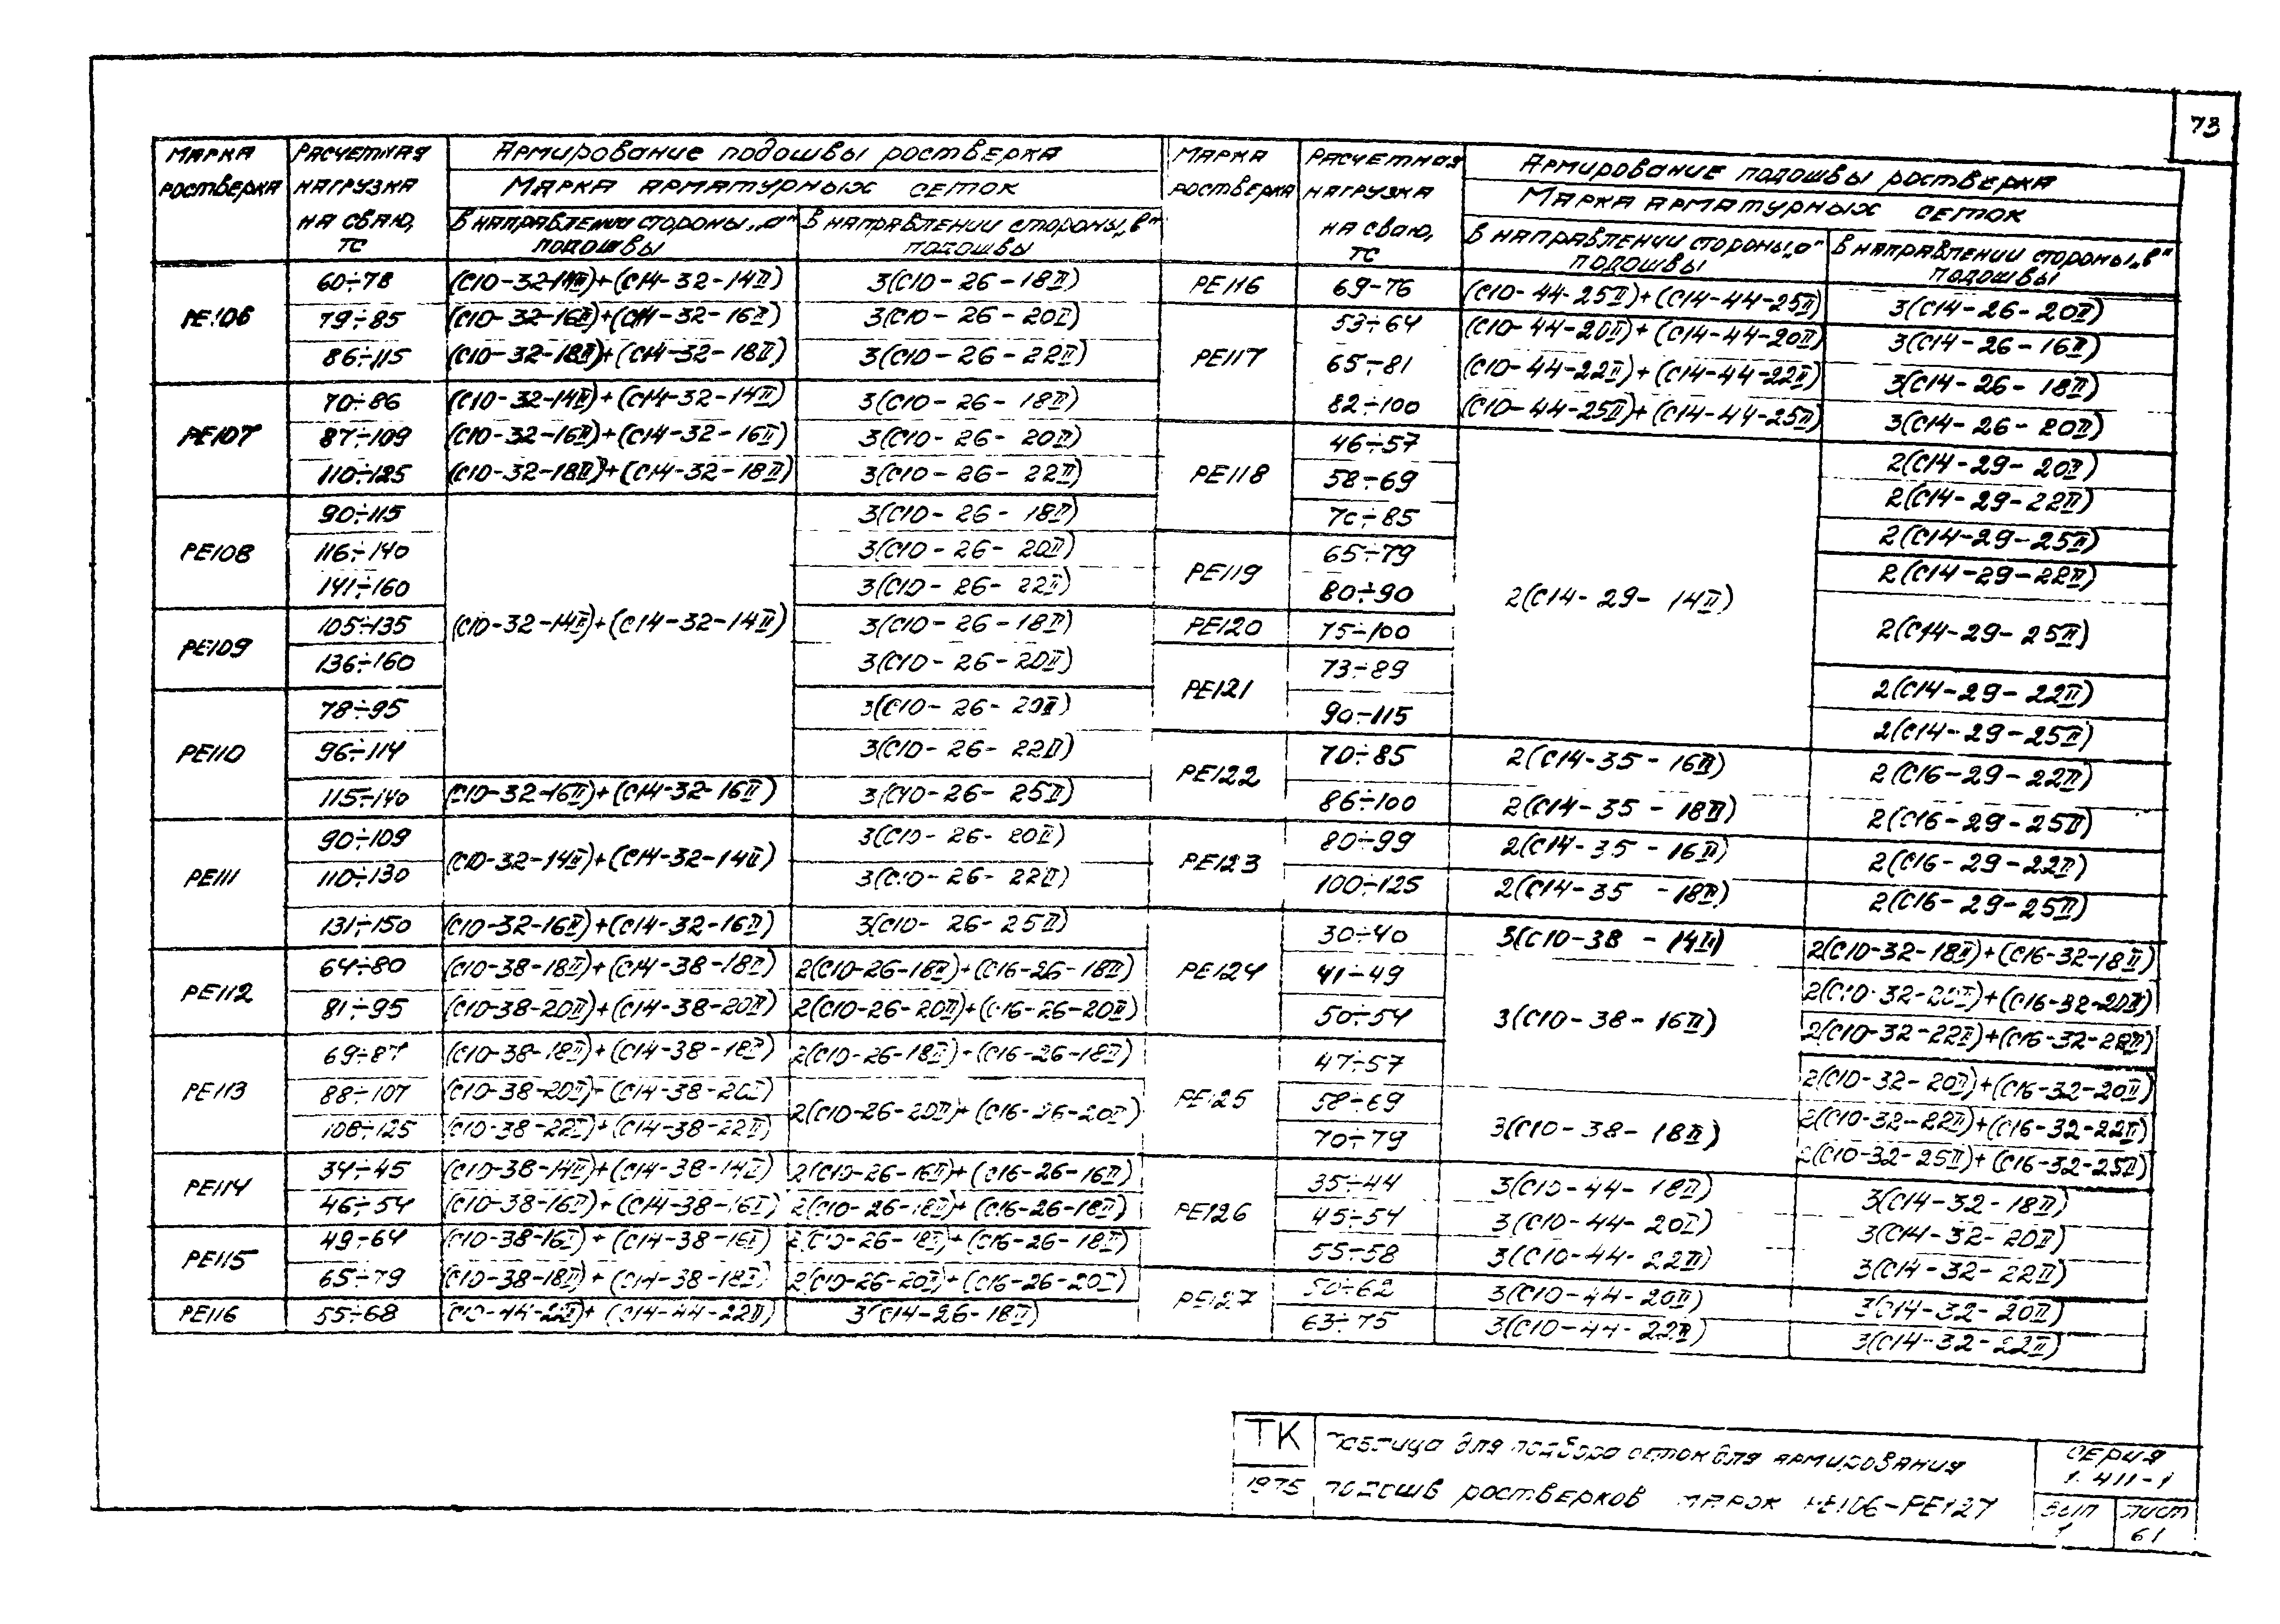 73
Марка ростверка | Расчетная нагрузка на сваю, тс | Армирование подошвы ростверка
Марка арматурных сеток
в направлении стороны „а" подошвы | в направлении стороны „в" подошвы
РЕ106 | 60÷78 | (С10-32-14II)+(С14-32-14II) | 3(С10-26-18II)
79÷85 | (С10-32-16II)+(С14-32-16II) | 3(С10-26-20II)
86÷115 | (С10-32-18II)+(С14-32-18II) | 3(С10-26-22II)
РЕ107 | 70÷86 | (С10-32-14II)+(С14-32-14II) | 3(С10-26-18II)
87÷109 | (С10-32-16II)+(С14-32-16II) | 3(С10-26-20II)
110÷125 | (С10-32-18II)+(С14-32-18II) | 3(С10-26-22II)
РЕ108 | 90÷115 | 3(С10-26-18II)
116÷140 | 3(С10-26-20II)
141÷160 | 3(С10-26-22II)
РЕ109 | 105÷135 | (С10-32-14II)+(С14-32-14II) | 3(С10-26-18II)
136÷160 | 3(С10-26-20II)
РЕ110 | 78÷95 | 3(С10-26-20II)
96÷114 | 3(С10-26-22II)
115÷140 | (С10-32-16II)+(С14-32-16II) | 3(С10-26-25II)
РЕ111 | 90÷109 | (С10-32-14II)+(С14-32-14II) | 3(С10-26-20II)
110÷130 | 3(С10-26-22II)
131÷150 | (С10-32-16II)+(С14-32-16II) | 3(С10-26-25II)
РЕ112 | 64÷80 | (С10-38-18II)+(С14-38-18II) | 2(С10-26-18II)+(С16-26-18II)
81÷95 | (С10-38-20II)+(С14-38-20II) | 2(С10-26-20II)+(С16-26-20II)
РЕ113 | 69÷87 | (С10-38-18II)+(С14-38-18II) | 2(С10-26-18II)+(С16-26-18II)
88÷107 | (С10-38-20II)+(С14-38-20II) | 2(С10-26-20II)+(С16-26-20II)
108÷125 | (С10-38-22II)+(С14-38-22II)
РЕ114 | 34÷45 | (С10-38-14II)+(С14-38-14II) | 2(С10-26-16II)+(С16-26-16II)
46÷54 | (С10-38-16II)+(С14-38-16II) | 2(С10-26-18II)+(С16-26-18II)
РЕ115 | 49÷64 | (С10-38-16II)+(С14-38-16II) | 2(С10-26-18II)+(С16-26-18II)
65÷79 | (С10-38-18II)+(С14-38-18II) | 2(С10-26-20II)+(С16-26-20II)
РЕ116 | 55÷68 | (С10-44-22II)+(С14-44-22II) | 3(С14-26-18II)
Марка ростверка | Расчетная нагрузка на сваю, тс | Армирование подошвы ростверка
Марка арматурных сеток
в направлении стороны „а" подошвы | в направлении стороны „в" подошвы
РЕ116 | 69-76 | (С10-44-25II)+(С14-44-25II) | 3(С14-26-20II)
РЕ117 | 53÷64 | (С10-44-20II)+(С14-44-20II) | 3(С14-26-16II)
65÷81 | (С10-44-22II)+(С14-44-22II) | 3(С14-26-18II)
82÷100 | (С10-44-25II)+(С14-44-25II) | 3(С14-26-20II)
РЕ118 | 46÷57 | 2(С14-29-20II)
58÷69 | 2(С14-29-22II)
70÷85 | 2(С14-29-25II)
РЕ119 | 65÷79 | 2(С14-29-14II) | 2(С14-29-22II)
80÷90 | 2(С14-29-25II)
РЕ120 | 75÷100
РЕ121 | 73÷89 | 2(С14-29-22II)
90÷115 | 2(С14-29-25II)
РЕ122 | 70÷85 | 2(С14-35-16II) | 2(С16-29-22II)
86÷100 | 2(С14-35-18II) | 2(С16-29-25II)
РЕ123 | 80÷99 | 2(С14-35-16II) | 2(С16-29-22II)
100÷125 | 2(С14-35-18II) | 2(С16-29-25II)
РЕ124 | 30÷40 | 3(С10-38-14II) | 2(С10-32-18II)+(С16-32-18II)
41÷49 | 3(С10-38-16II) | 2(С10-32-20II)+(С16-32-20II)
50÷54 | 2(С10-32-22II)+(С16-32-22II)
РЕ125 | 47÷57 | 2(С10-32-20II)+(С16-32-20II)
58÷69 | 3(С10-38-18II) | 2(С10-32-22II)+(С16-32-22II)
70÷79 | 2(С10-32-25II)+(С16-32-25II)
РЕ126 | 35÷44 | 3(С10-44-18II) | 3(С14-32-18II)
45÷54 | 3(С10-44-20II) | 3(С14-32-20II)
55÷58 | 3(С10-44-22II) | 3(С14-32-22II)
РЕ127 | 50÷62 | 3(С10-44-20II) | 3(С14-32-20II)
63÷75 | 3(С10-44-22II) | 3(С14-32-22II)
ТК
1975
Таблица для подбора сеток для армирования
подошв ростверков марок РЕ106-РЕ127
Серия
1.411-1
Вып
1
Лист
61